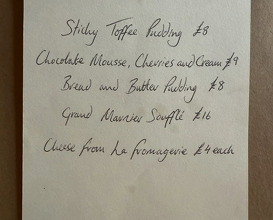 Sticky Toffee Pudding £8
Chocolate Mousse, Cherries and Cream £9
Bread and Butter Pudding £8
Grand Marnier Soufflé £16
Cheese from La fromagerie £4 each